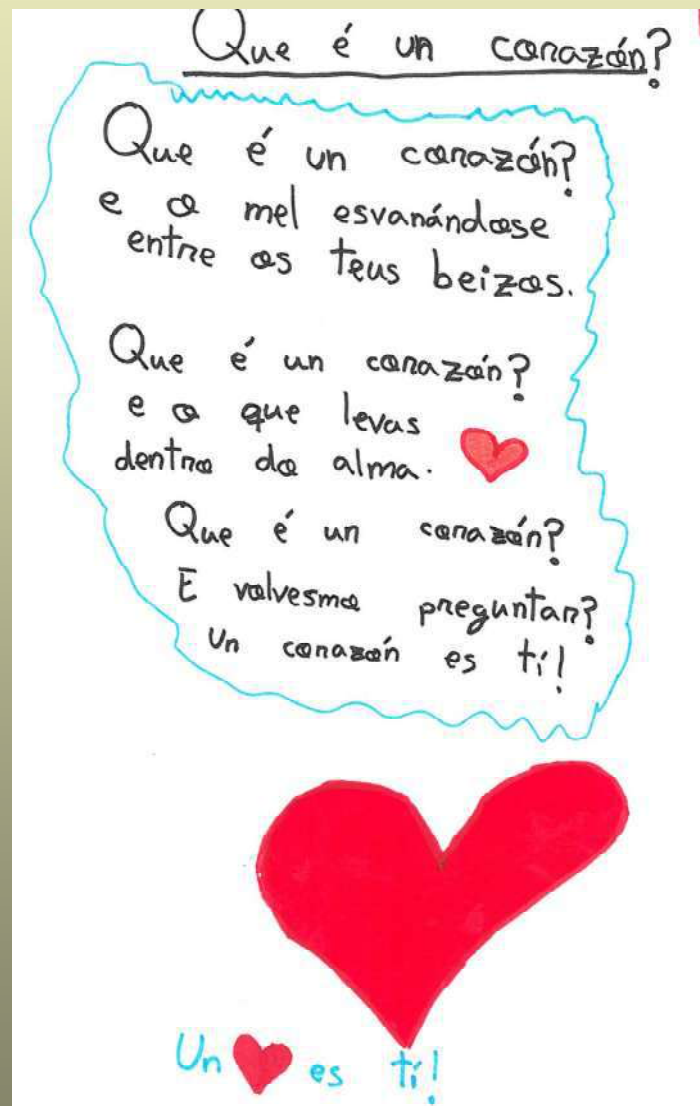 Que é un corazón?
Que é un corazón?
e o mel esvarándose
entre os teus beizos.
Que é un corazón?
e o que levas
dentro da alma.
Que é un corazón?
E volvesmo preguntar?
Un corazón es tí!
Un es tí!